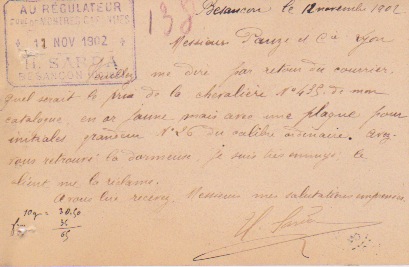 AU RÉGULATEUR
11 NOV 1902
H. SARDA
BESANCON
138
Besancon le 12 novembre 1902
Messieurs et Cie Lyon
Veuillez me dire par retour du courrier,
quel serait le prix de la chevalière N° 435 de mon
catalogue, en or jaune mais avec une plaque pour
initiales grandeur N° 26 du calibre ordinaire. Avez
vous retrouvé la dormeuse, je suis très ennuyé, le
client me la réclame.
A vous lire recevez, Messieurs mes salutations empressées
H. Sarda
10g = 30.50
35
65